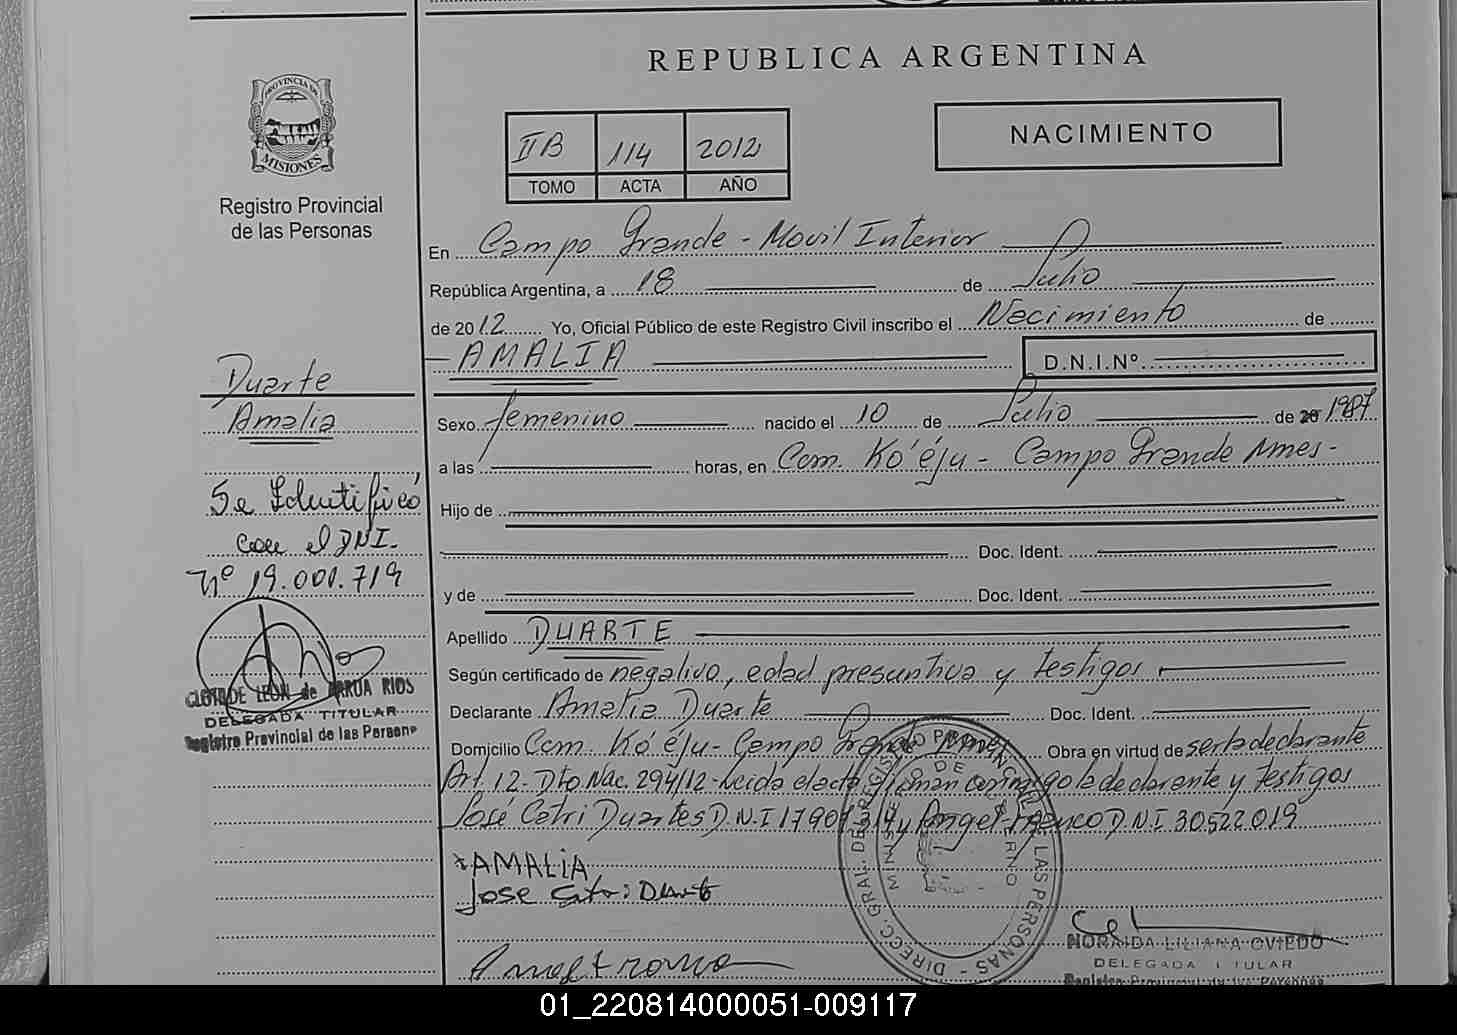 REPUBLICA ARGENTINA
PROVINCIA DE
MISIONES
Registro Provincial
de las Personas
IIB 114 2012
TOMO ACTA AÑO
NACIMIENTO
En Campo Grande - Movil Interior
República Argentina, a 18 de Julio
de 2012 Yo, Oficial Público de este Registro Civil inscribo el Nacimiento de
AMALIA D.N.I.Nº
Duarte
Amalia
Sexo femenino nacido el 10 de Julio de 20 1987
a las horas, en Com. Ko'éju - Campo Grande Mnes-
Se Identificó
con el DNI.
Nº 19.001.719
Hijo de
Doc. Ident.
y de Doc. Ident.
Apellido DUARTE
Según certificado de negativo, edad presuntiva y testigos
Declarante Amalia Duarte Doc. Ident.
CLOTILDE LEON de ARRUA RIOS
DELEGADA TITULAR
Registro Provincial de las Personas
Domicilio Com. Ko'éju - Campo Grande Mnes Obra en virtud de ser la declarante
Art. 12 - Dto Nac. 294/12 - Leida el acta firman conmigo la declarante y testigos
José Catri Duartes D.N.I y Angel Franco D.N.I 30522019
AMALIA
Jose Catri Duarte
DIRECC. GRAL. DE REGISTRO PROVINCIAL DE LAS PERSONAS
MINISTERIO DE GOBIERNO
Angel Franco
NORAIDA LILIANA OVIEDO
DELEGADA TITULAR
Registro Provincial de las Personas
01_220814000051-009117